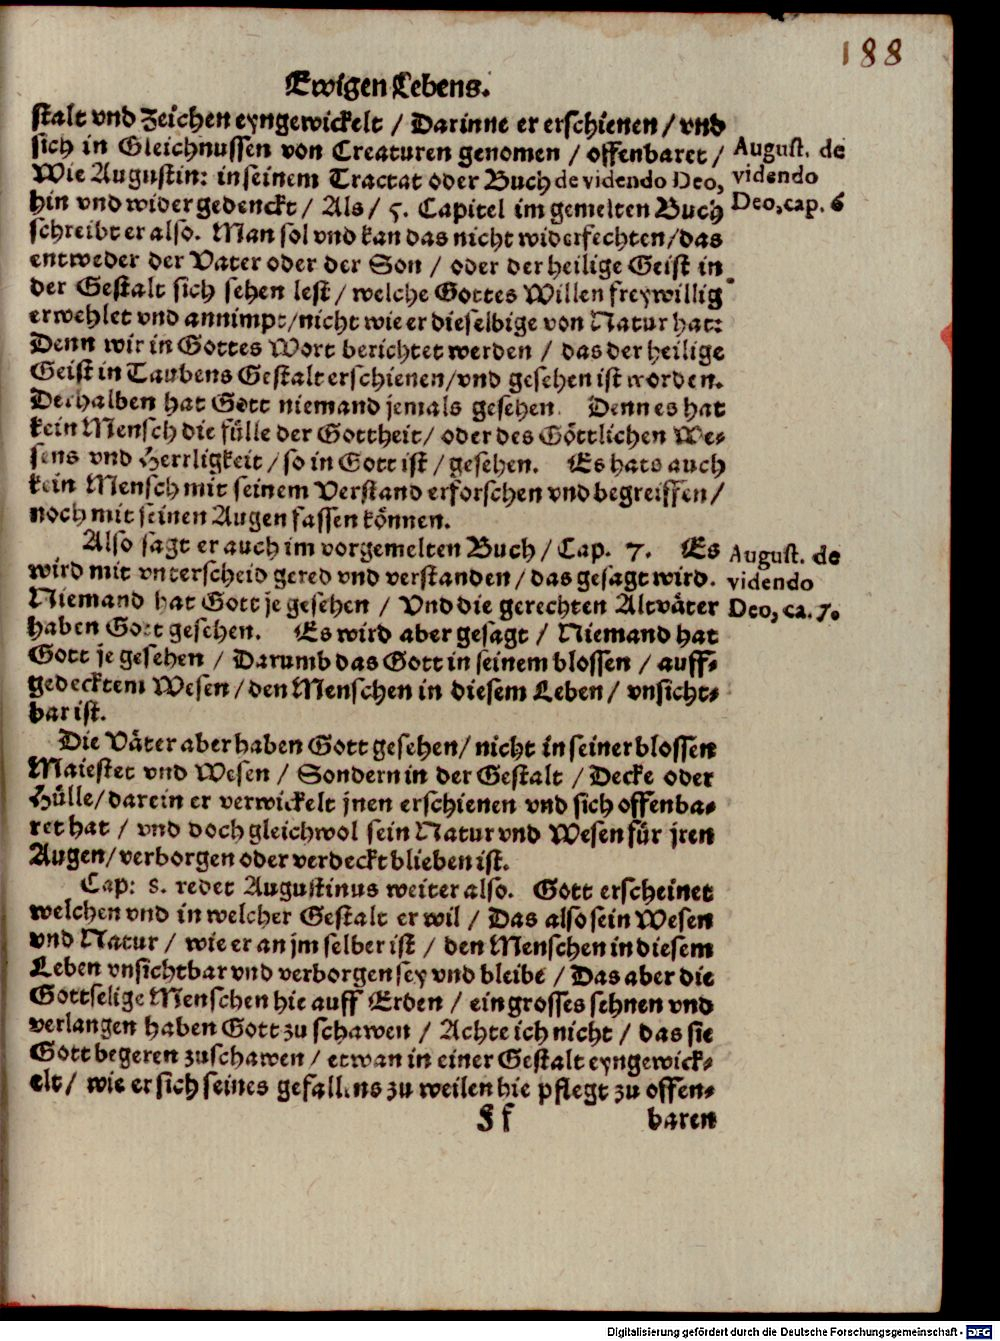 188
Ewigen Lebens.
stalt vnd Zeichen eyngewickelt / Darinne er erschienen / vnd
sich in Gleichnussen von Creaturen genomen / offenbaret /
Wie Augustin: in seinem Tractat oder Buch de videndo Deo,
hin vnd wider gedenckt / Als / 5. Capitel im gemelten Buch
schreibt er also. Man sol vnd kan das nicht widerfechten / das
entweder der Vater oder der Son / oder der heilige Geist in
der Gestalt sich sehen lest / welche Gottes Willen freywillig
erwehlet vnd annimpt / nicht wie er dieselbige von Natur hat:
Denn wir in Gottes Wort berichtet werden / das der heilige
Geist in Taubens Gestalt erschienen / vnd gesehen ist worden.
Derhalben hat Gott niemand jemals gesehen. Denn es hat
kein Mensch die fülle der Gottheit / oder des Göttlichen We-
sens vnd Herrligkeit / so in Gott ist / gesehen. Es hats auch
kein Mensch mit seinem Verstand erforschen vnd begreiffen /
noch mit seinen Augen fassen können.
August. de
videndo
Deo, cap. 6
Also sagt er auch im vorgemelten Buch / Cap. 7. Es
wird mit vnterscheid gered vnd verstanden / das gesagt wird.
Niemand hat Gott je gesehen / Vnd die gerechten Altväter
haben Gott gesehen. Es wird aber gesagt / Niemand hat
Gott je gesehen / Darumb das Gott in seinem blossen / auff-
gedecktem Wesen / den Menschen in diesem Leben / vnsicht-
bar ist.
August. de
videndo
Deo, ca. 7.
Die Väter aber haben Gott gesehen / nicht in seiner blossen
Maiestet vnd Wesen / Sondern in der Gestalt / Decke oder
Hülle / darein er verwickelt jnen erschienen vnd sich offenba-
ret hat / vnd doch gleichwol sein Natur vnd Wesen für jren
Augen / verborgen oder verdeckt blieben ist.
Cap: 8. redet Augustinus weiter also. Gott erscheinet
welchen vnd in welcher Gestalt er wil / Das also sein Wesen
vnd Natur / wie er an jm selber ist / den Menschen in diesem
Leben vnsichtbar vnd verborgen sey vnd bleibe / Das aber die
Gottselige Menschen hie auff Erden / ein grosses sehnen vnd
verlangen haben Gott zu schawen / Achte ich nicht / das sie
Gott begeren zuschawen / etwan in einer Gestalt eyngewick-
elt / wie er sich seines gefallens zu weilen hie pflegt zu offen-
Ff baren
Digitalisierung gefördert durch die Deutsche Forschungsgemeinschaft - DFG